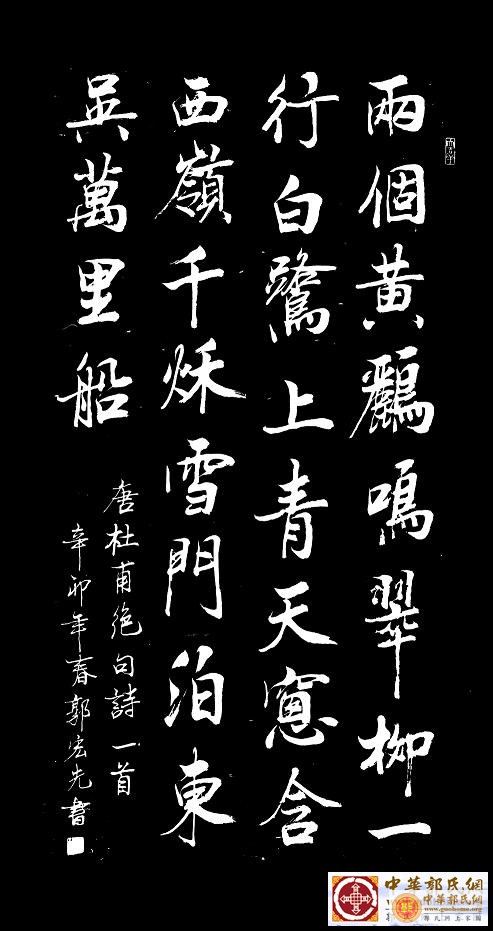 兩個黄鸝鳴翠柳一
行白鷺上青天窓含
西嶺千秌雪門泊東
吳萬里船
唐杜甫绝句詩一首
辛卯年春郭宏先書
中華郭氏網
中華郭氏网
www.guohome.org
郭氏網上家園